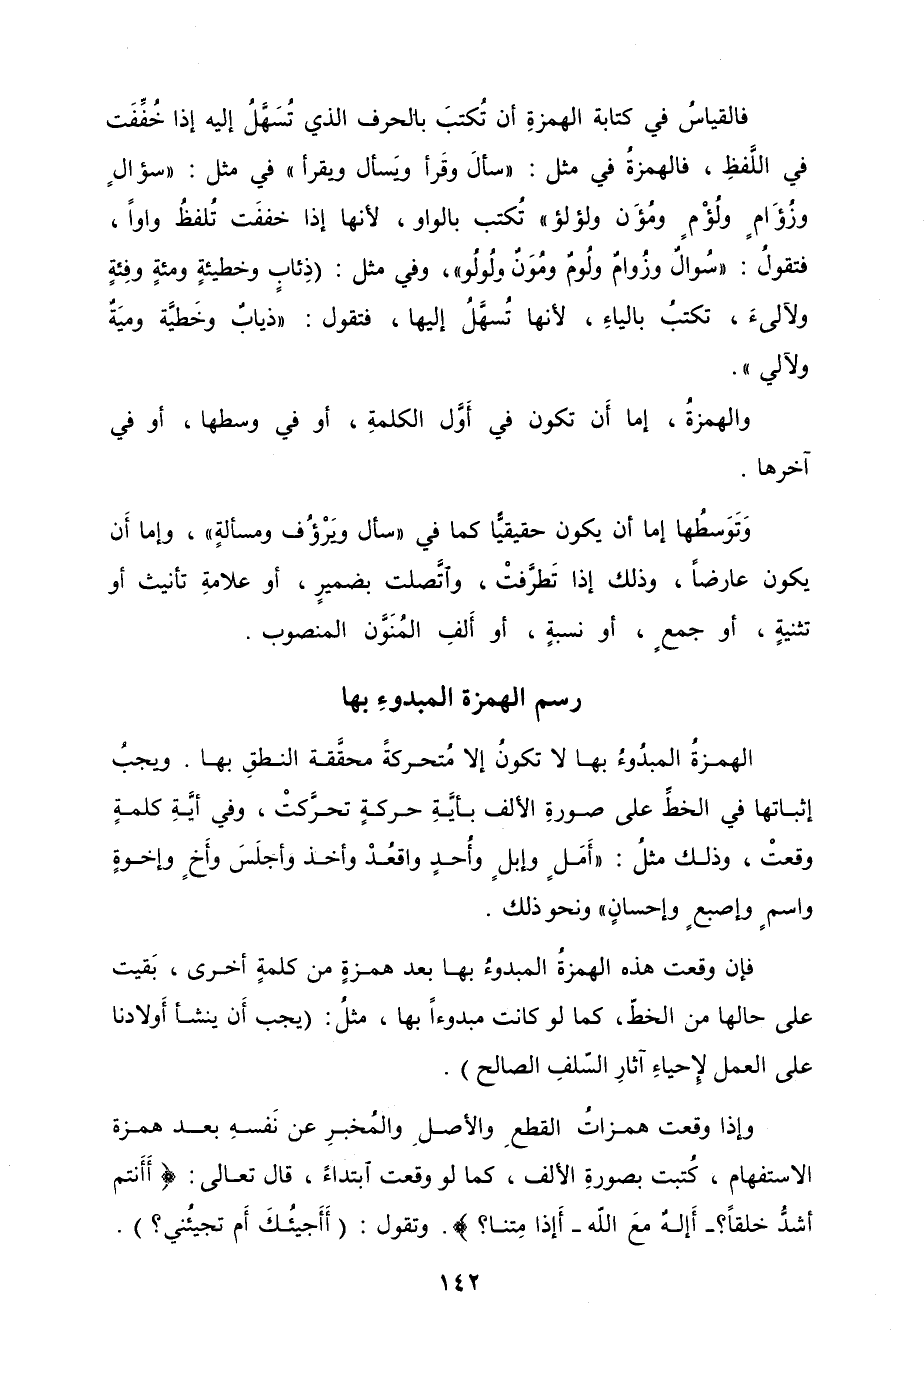 فالقياسُ في كتابة الهمزةِ أن تُكتبَ بالحرف الذي تُسَهَّلُ إليه إذا خُفِّفَت
في اللَّفظِ ، فالهمزةُ في مثل : «سألَ وقَرأ ويَسأل ويقرأ» في مثل : «سؤالٍ
وزُؤَامٍ ولُؤْمٍ ومُؤَن ولؤلؤ» تُكتب بالواو ، لأنها إذا خففَت تُلفظُ واواً ،
فتقولُ : «سُوالٌ وزُوامٌ ولُومٌ ومُوَنٌ ولُولُو»، وفي مثل : (ذِئابٍ وخطيئةٍ ومئةٍ وفِئةٍ
ولآلىءَ ، تكتبُ بالياءِ ، لأنها تُسهَّلُ إليها ، فتقول : «ذيابٌ وخَطيَّة وميَةٌ
ولآلي» .
والهمزةُ ، إما أَن تكون في أوَّل الكلمةِ ، أو في وسطها ، أو في
آخرها .
وَتَوَسطُها إما أن يكون حقيقيًّا كما في «سأل ويَرْؤُف ومسألةٍ» ، وإما أَن
يكون عارضاً ، وذلك إذا تَطرَّفتْ ، وآتَّصلت بضميرٍ ، أو علامةِ تأنيث أو
تثنيةٍ ، أو جمعٍ ، أو نسبةٍ ، أو أَلفِ المُنَوَّن المنصوب .
رسم الهمزة المبدوءِ بها
الهمزةُ المبدُوءُ بها لا تكونُ إلا مُتحركةً محقَّقة النطقِ بها . ويجبُ
إثباتها في الخطِّ على صورةِ الألف بأيَّةِ حركةٍ تحرَّكتْ ، وفي أيَّةِ كلمةٍ
وقعتْ ، وذلك مثلُ : «أَمَلٍ وإبلٍ وأُحدٍ واقعُدْ وأخذ وأجلَسَ وأَخٍ وإخوةٍ
واسمٍ وإصبعٍ وإحسانٍ» ونحو ذلك .
فإن وقعت هذه الهمزةُ المبدوءُ بها بعد همزةٍ من كلمةٍ أخرى ، بَقيت
على حالها من الخطّ، كما لو كانت مبدوءاً بها ، مثلُ: (يجب أَن ينشأ أَولادنا
على العمل لإِحياءِ آثارِ السّلفِ الصالح ) .
وإذا وقعت همزاتُ القطعِ والأصلِ والمُخبرِ عن نَفسهِ بعد همزة
الاستفهام ، كُتبت بصورةِ الألف ، كما لو وقعت آبتداءً ، قال تعالى: ﴿ أَأَنتم
أشدُّ خلقاً؟ـ أَإلهٌ معَ اللّه ـ أَإذا مِتنا؟ ﴾. وتقول : ( أَأجيئُكَ أم تجيئُني؟ ) .
١٤٢